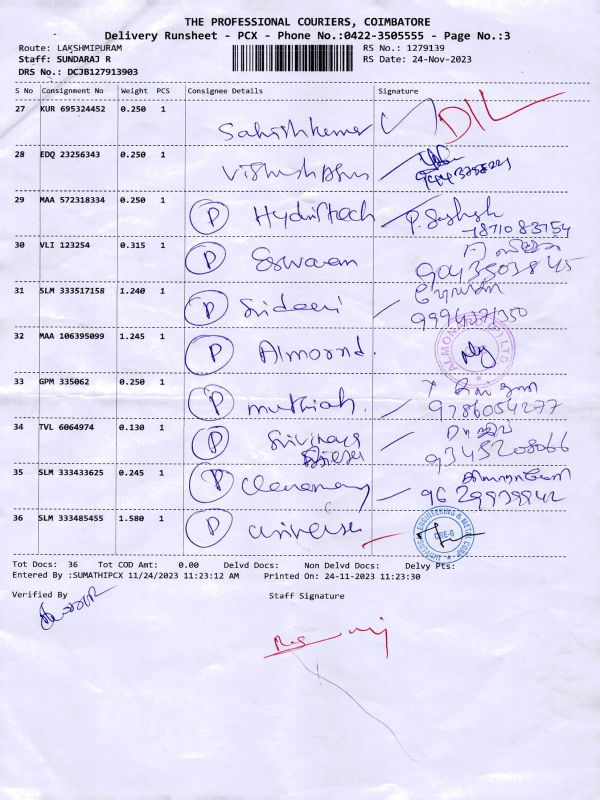 THE PROFESSIONAL COURIERS, COIMBATORE
Delivery Runsheet - PCX - Phone No.:0422-3505555 - Page No.:3
Route: LAKSHMIPURAM RS No.: 1279139
Staff: SUNDARAJ R RS Date: 24-Nov-2023
DRS No.: DCJB127913903
S No Consignment No Weight PCS Consignee Details Signature
27 KUR 695324452 0.250 1
Sathishkumar D/L
28 EDQ 23256343 0.250 1
29 MAA 572218334 0.250 1
P Hydrotech
30 VLI 123254 0.315 1
P Eswaran
9043503845
31 SLM 333517158 1.240 1
P Sridevi
9994271350
32 MAA 106395099 1.245 1
P Almornd.
33 GPM 335062 0.250 1
P muthiah.
9786054277
34 TVL 6064974 0.130 1
P
9345208066
35 SLM 333433625 0.245 1
P
9629939842
36 SLM 333485455 1.580 1
P universe
UNIVERSE ENGINEERING & METAL CORP.
CBE-6
Tot Docs: 36 Tot COD Amt: 0.00 Delvd Docs: Non Delvd Docs: Delvy Pts:
Entered By :SUMATHIPCX 11/24/2023 11:23:12 AM Printed On: 24-11-2023 11:23:30
Verified By Staff Signature